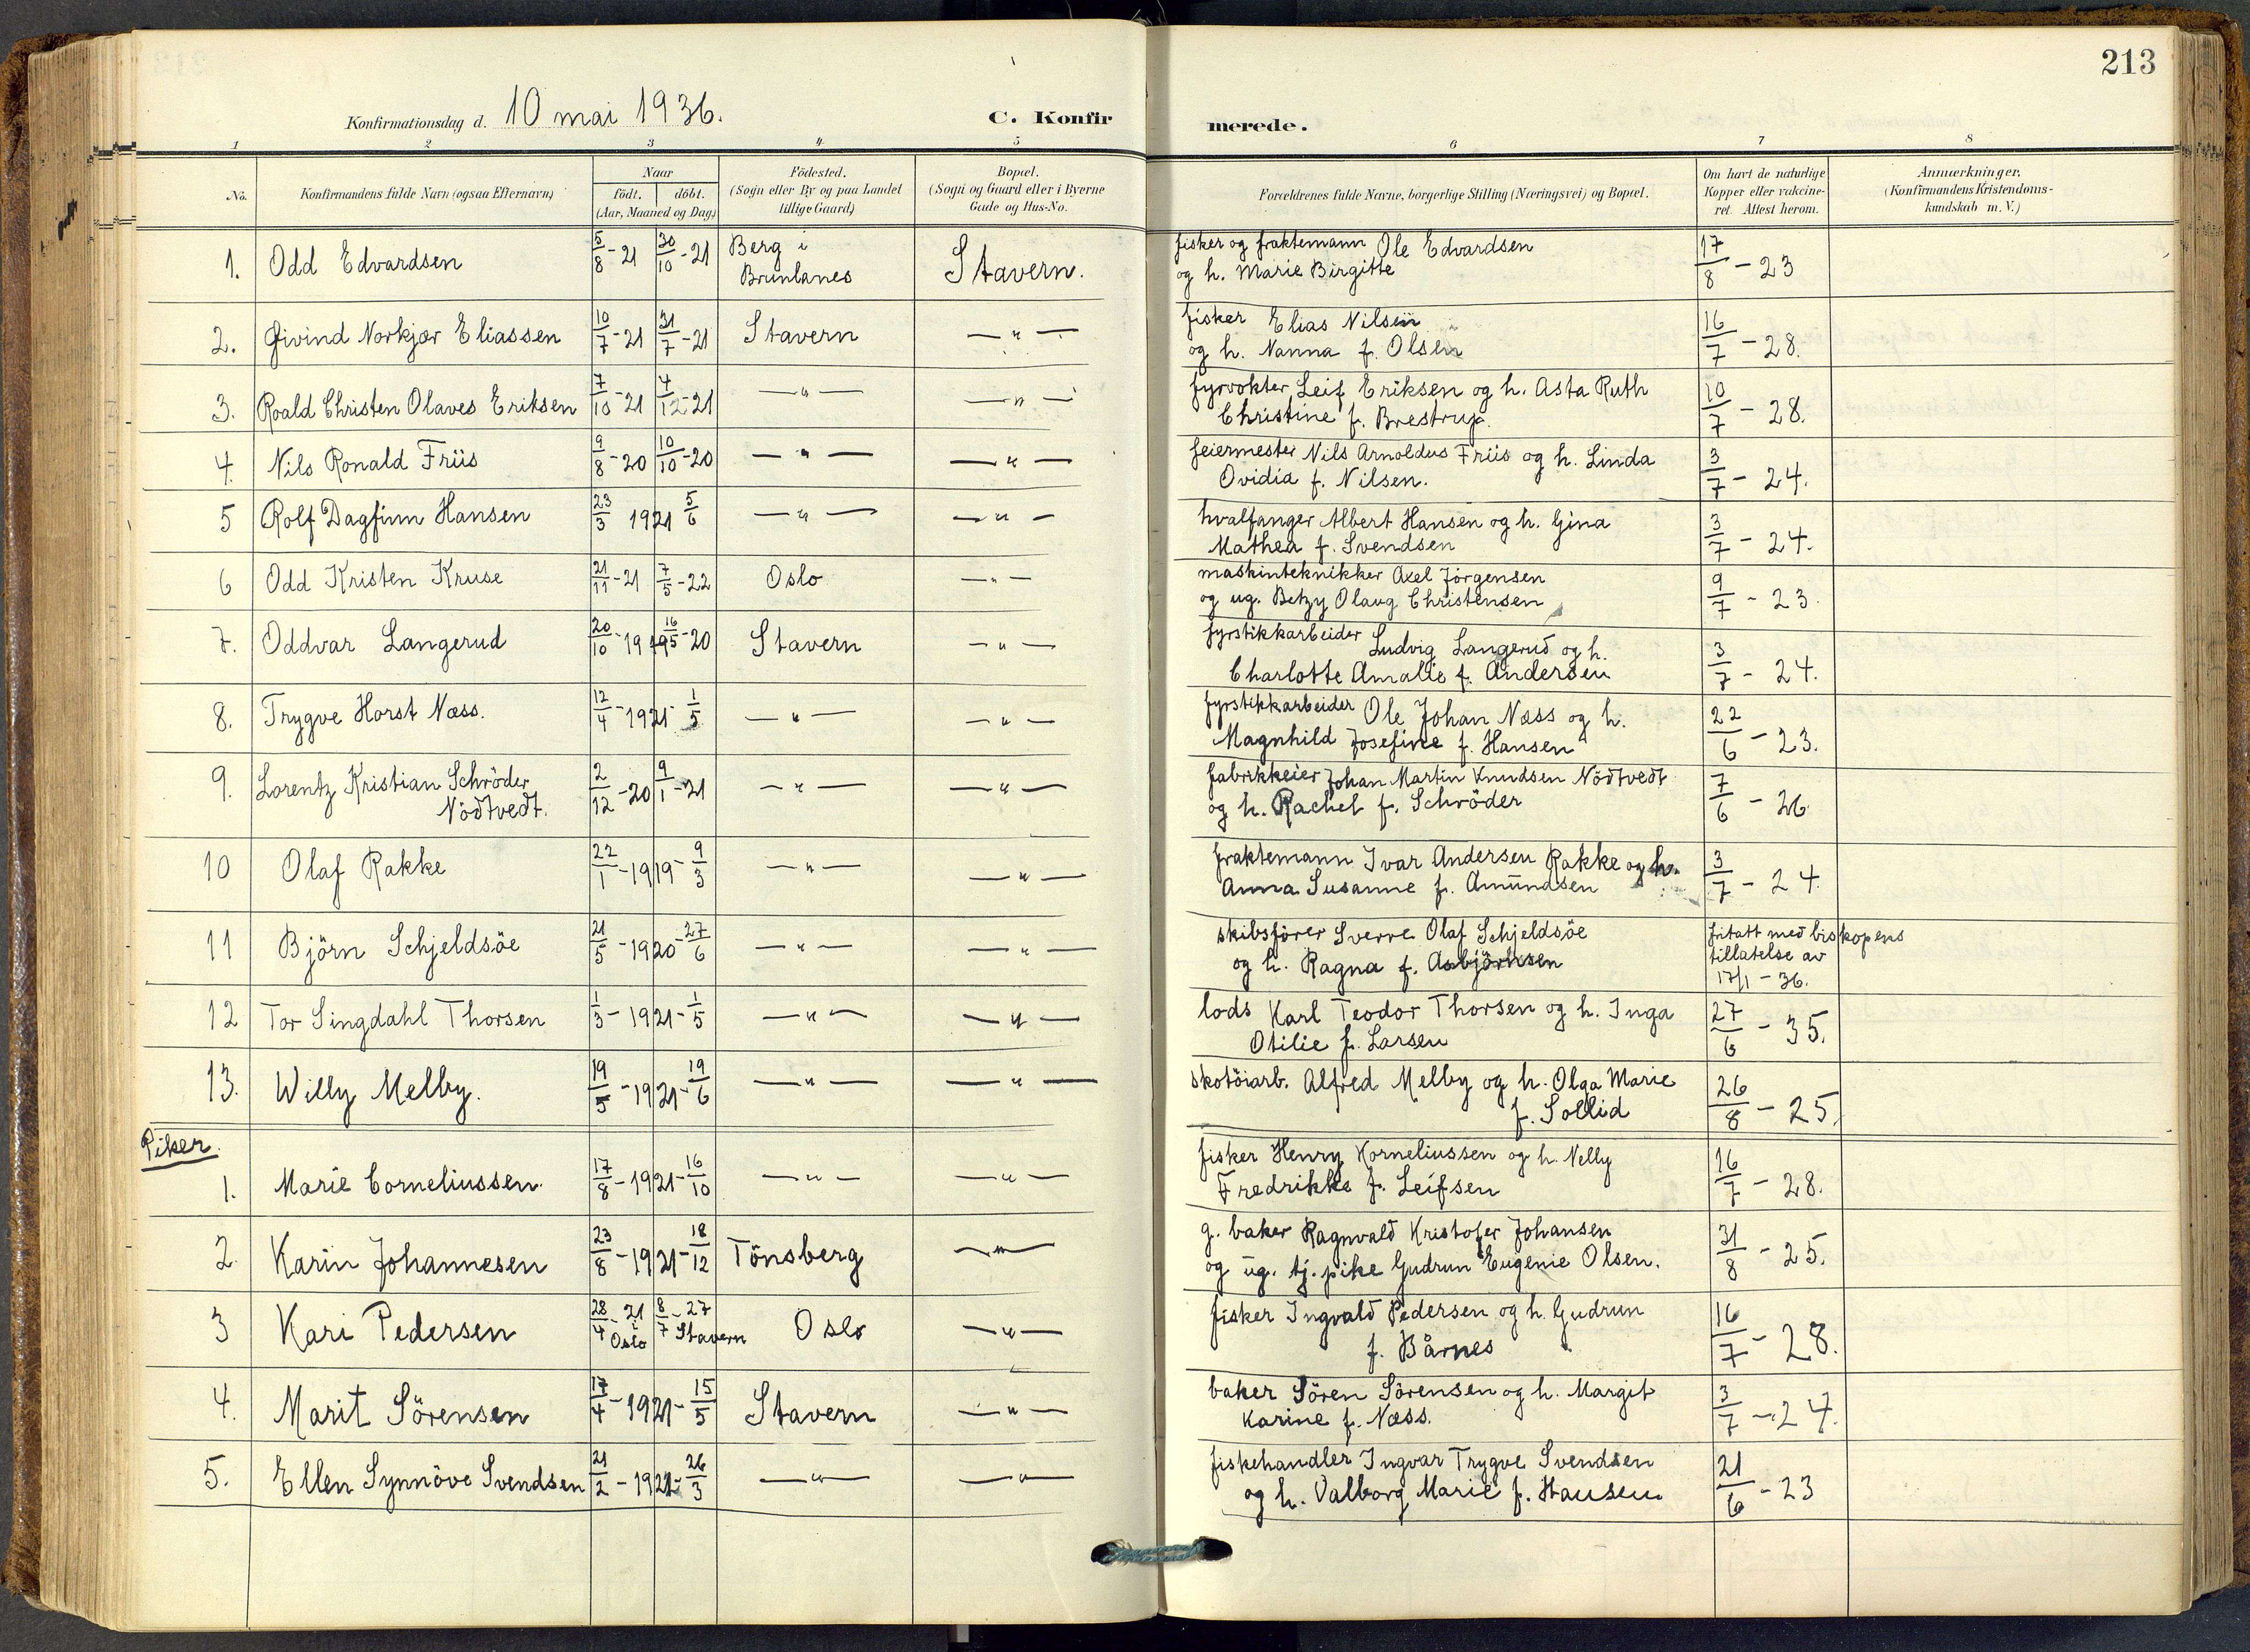 213
Konfirmationsdag d. 10 mai 1936.
C. Konfir
merede.
1 2 3 4 5 6 7 8
No.
Konfirmandens fulde Navn (ogsaa Efternavn)
Naar
födt. döbt.
(Aar, Maaned og Dag)
Födested.
(Sogn eller By og paa Landet
tillige Gaard)
Bopæl.
(Sogn og Gaard eller i Byerne
Gade og Hus-No.
Forældrenes fulde Navne, borgerlige Stilling (Næringsvei) og Bopæl.
Om havt de naturlige
Kopper eller vakcine-
ret. Attest herom.
Anmærkninger.
(Konfirmandens Kristendoms-
kundskab m. V.)
1. Odd Edvardsen 5/8 - 21 30/10 - 21 Berg i
Brunlanes Stavern.
fisker og fraktemann Ole Edvardsen
og h. Marie Birgitte 17/8 - 23
2. Øivind Norkjær Eliassen 10/7 - 21 31/7 - 21 Stavern — " —
fisker Elias Nilsen
og h. Nanna f. Olsen 16/7 - 28.
3. Roald Christen Olaves Eriksen 7/10 - 21 4/12 - 21 — " — — " —
fyrvokter Leif Eriksen og h. Asta Ruth
Christine f. Brestrup. 10/7 - 28.
4. Nils Ronald Friis 9/8 - 20 10/10 - 20 — " — — " —
feiermester Nils Arnoldus Friis og h. Linda
Ovidia f. Nilsen. 3/7 - 24.
5 Rolf Dagfinn Hansen 23/3 1921 5/6 — " — — " —
hvalfanger Albert Hansen og h. Gina
Mathea f. Svendsen 3/7 - 24.
6 Odd Kristen Kruse 21/11 - 21 7/5 - 22 Oslo — " —
maskinteknikker Axel Jörgensen
og ug. Betzy Olaug Christensen 9/7 - 23.
7. Oddvar Langerud 20/10 - 19 16/5 - 20 Stavern — " —
fyrstikkarbeider Ludvig Langerud og h.
Charlotte Amalie f. Andersen 3/7 - 24.
8. Trygve Horst Næss. 12/4 - 1921 - 1/5 — " — — " —
fyrstikkarbeider Ole Johan Næss og h.
Magnhild Josefine f. Hansen 22/6 - 23.
9. Lorentz Kristian Schröder
Nödtvedt. 2/12 - 20 9/1 - 21 — " — — " —
fabrikkeier Johan Martin Knudsen Nödtvedt
og h. Rachel f. Schröder 7/6 - 26
10 Olaf Rakke 22/1 - 1919 - 9/3 — " — — " —
fraktemann Ivar Andersen Rakke og h.
Anna Susanne f. Amundsen 3/7 - 24.
11 Björn Schjeldsöe 21/5 - 1920 - 27/6 — " — — " —
skibsförer Sverre Olaf Schjeldsöe
og h. Ragna f. Asbjörnsen
fritatt med biskopens
tillatelse av
17/1 - 36.
12 Tor Singdahl Thorsen 1/3 - 1921 - 1/5 — " — — " —
lods Karl Teodor Thorsen og h. Inga
Otilie f. Larsen 27/6 - 35.
13. Willy Melby. 19/5 - 1921 - 19/6 — " — — " —
skotöiarb. Alfred Melby og h. Olga Marie
f. Sollid 26/8 - 25.
Piker.
1. Marie Corneliussen. 17/8 - 1921 - 16/10 — " — — " —
fisker Henry Korneliussen og h. Nelly
Fredrikke f. Leifsen 16/7 - 28.
2. Karin Johannesen 23/8 - 1921 - 18/12 Tönsberg — " —
g. baker Ragnvald Kristofer Johansen
og ug. tj. pike Gudrun Eugenie Olsen. 31/8 - 25.
3 Kari Pedersen 28/4 - 21 i Oslo 8/7 - 27 Stavern Oslo — " —
fisker Ingvald Pedersen og h. Gudrun
f. Bårnes 16/7 - 28.
4. Marit Sörensen 17/4 - 1921 - 15/5 Stavern — " —
baker Sören Sörensen og h. Margit
Karine f. Næss. 3/7 - 24.
5. Ellen Synnöve Svendsen 21/2 - 1921 - 26/3 — " — — " —
fiskehandler Ingvar Trygve Svendsen
og h. Valborg Marie f. Hansen 21/6 - 23